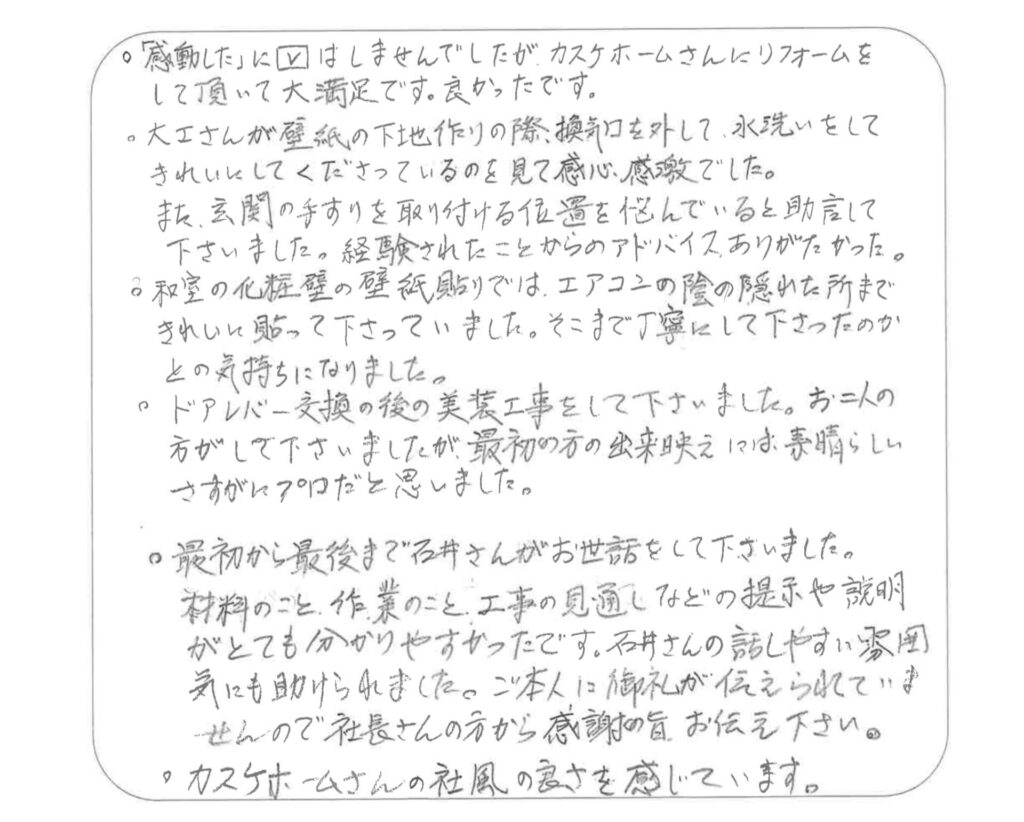 。「感動した」に☑はしませんでしたが、カスケホームさんにリフォームを
して頂いて大満足です。良かったです。
。大工さんが壁紙の下地作りの際、換気口を外して、水洗いをして
きれいにしてくださっているのを見て感心、感激でした。
また、玄関の手すりを取り付ける位置を悩んでいると助言して
下さいました。経験されたことからのアドバイス、ありがたかった。
。和室の化粧壁の壁紙貼りでは、エアコンの陰の隠れた所まで
きれいに貼って下さっていました。そこまで丁寧にして下さったのか
との気持ちになりました。
。ドアレバー交換の後の美装工事をして下さいました。お二人の
方がして下さいましたが、最初の方の出来映えには、素晴らしい
さすがにプロだと思いました。
。最初から最後まで石井さんがお世話をして下さいました。
材料のこと、作業のこと、工事の見通しなどの提示や説明
がとても分かりやすかったです。石井さんの話しやすい雰囲
気にも助けられました。ご本人に御礼が伝えられていま
せんので社長さんの方から感謝の旨、お伝え下さい。
。カスケホームさんの社風の良さを感じています。